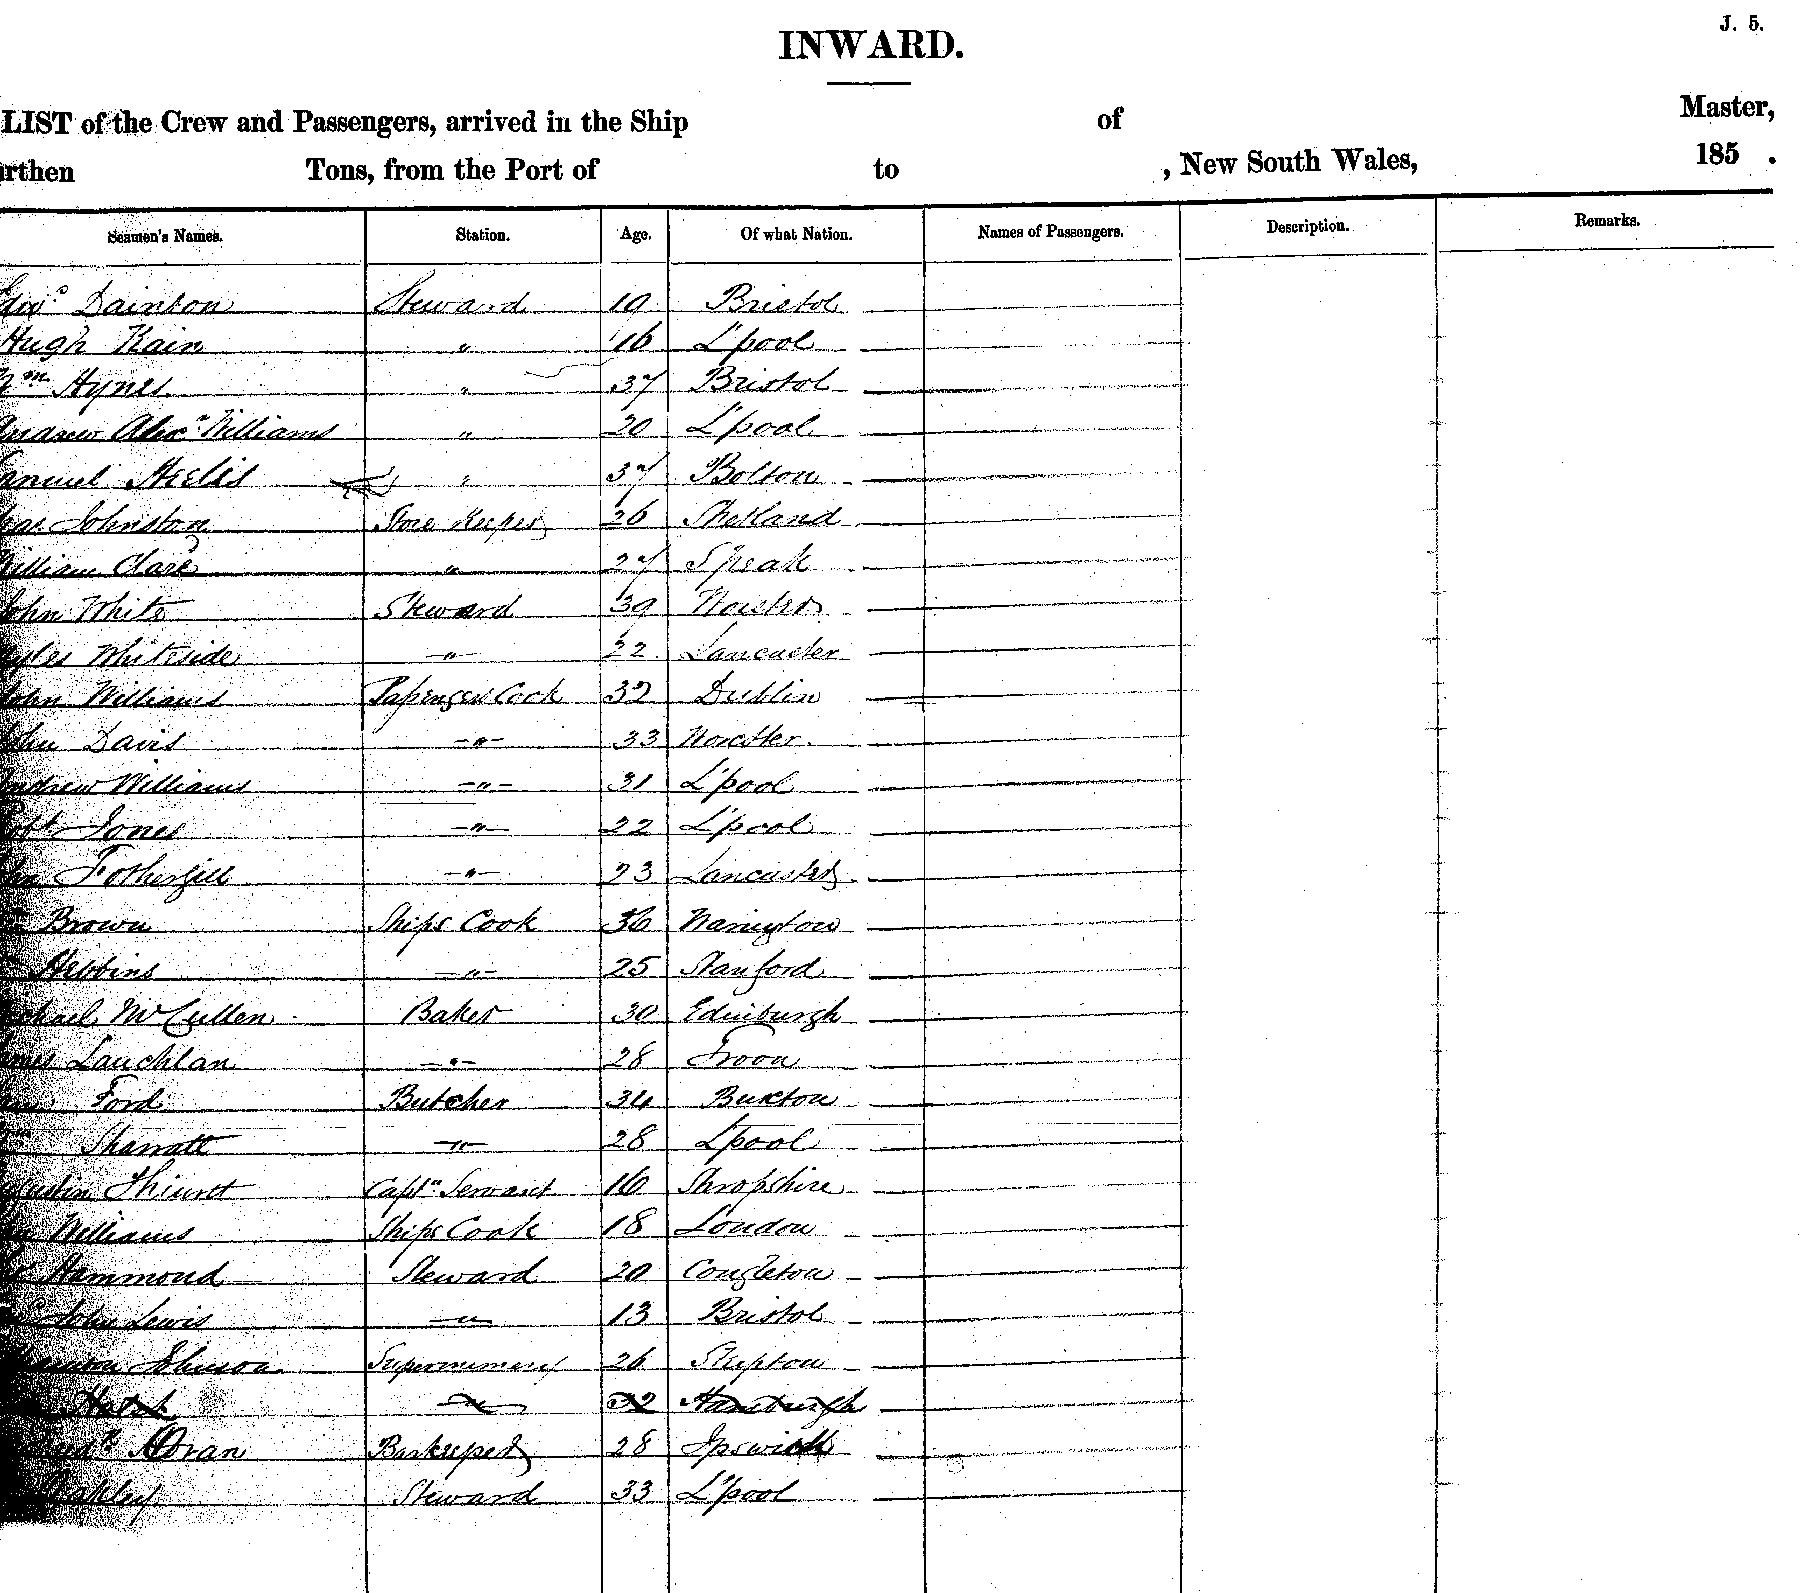 J. 5.
INWARD.
LIST of the Crew and Passengers, arrived in the Ship of Master,
rthen Tons, from the Port of to , New South Wales, 185 .
Seamen's Names. Station. Age. Of what Nation. Names of Passengers. Description. Remarks.
Edwd Dainton Steward 19 Bristol
Hugh Kain " 16 L'pool
Wm Hynes " 37 Bristol
Andrew Alexr Williams " 20 L'pool
Samuel " 37 Bolton
Johnston Store Keeper 26 Shetland
William Clare " 27 Speak
John White Steward 39
Myles Whiteside " 22 Lancaster
John Williams Passengers Cook 32 Dublin
John Davis " 33 Worcester
Andrew Williams " 31 L'pool
Robt Jones " 22 L'pool
Fothergill " 23 Lancaster
Brown Ships Cook 36
Stebbins " 25 Stanford
McCullen Baker 30 Edinburgh
Lauchlan " 28 Troon
Ford Butcher 34 Buxton
Sharratt " 28 L'pool
Captn Servant 16 Shropshire
Williams Ships Cook 18 London
Hammond Steward 20 Congleton
John Lewis " 13 Bristol
Johnson Supernumerary 26 Skipton
" 32 Hamburgh
Moran Barkeeper 28 Ipswich
Steward 33 L'pool